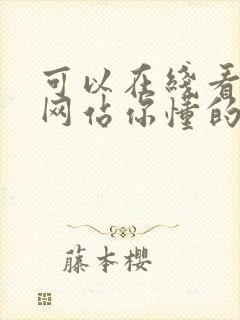 可以在线看
网佔你懂的
藤本樱